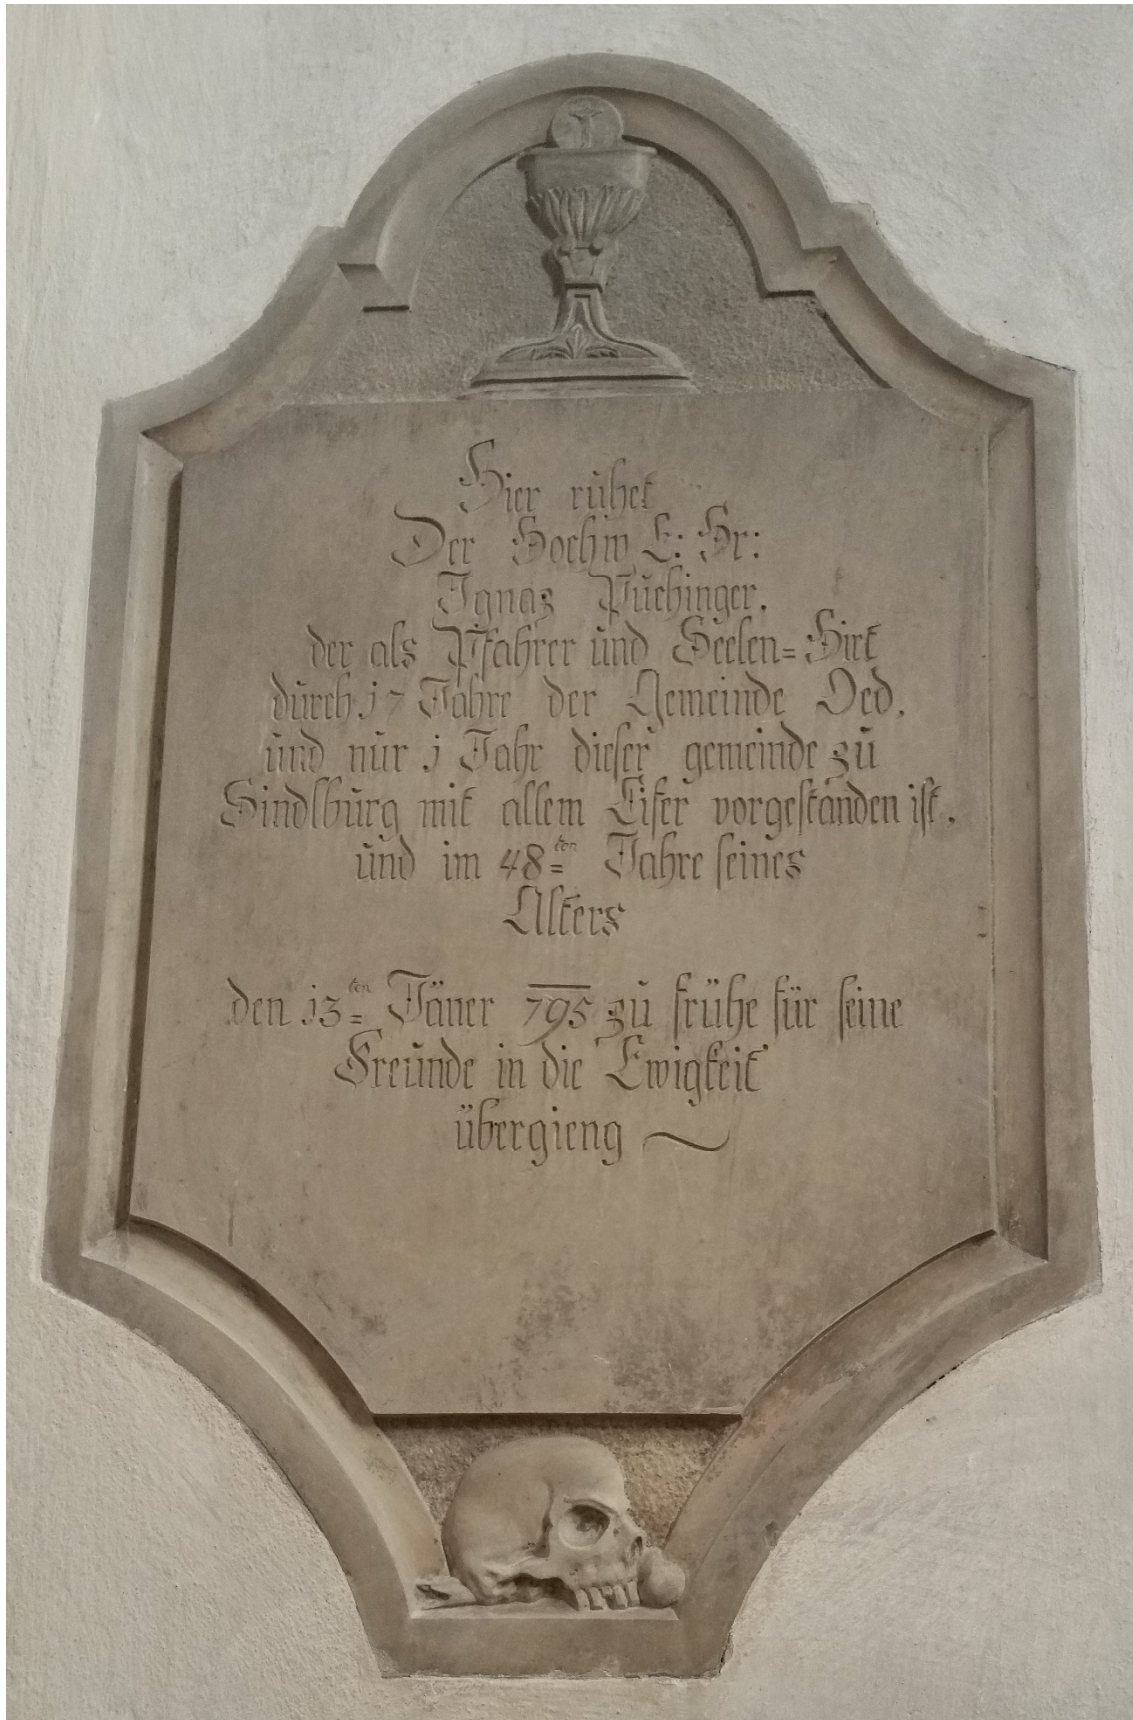 Hier ruhet
Der Hochw E: Hr:
Ignaz Puchinger.
der als Pfahrer und Seelen=Hirt
durch 17 Jahre der Gemeinde Oed,
und nur 1 Jahr dieser gemeinde zu
Sindlburg mit allem Eifer vorgestanden ist,
und im 48=ten Jahre seines
Alters
den 13=ten Jäner 795 zu frühe für seine
Freunde in die Ewigkeit
übergieng ~